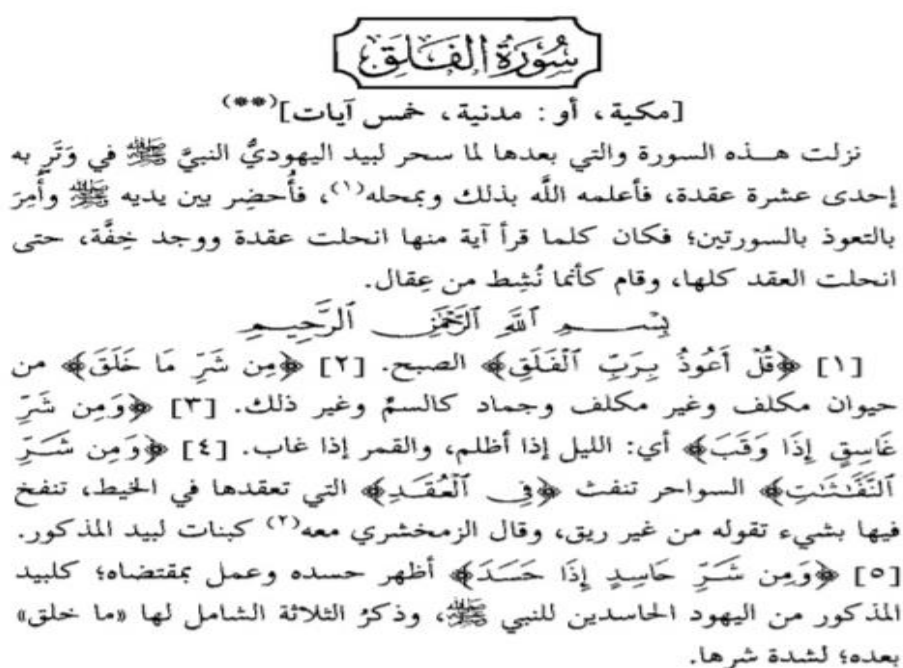 سُورَةُ الفَلَقِ
[مكية، أو: مدنية، خمس آيات](**)
نزلت هذه السورة والتي بعدها لما سحر لبيد اليهوديُّ النبيَّ ﷺ في وَتَرٍ به
إحدى عشرة عقدة، فأعلمه اللَّه بذلك وبمحله(١)، فأُحضِر بين يديه ﷺ وأُمِرَ
بالتعوذ بالسورتين؛ فكان كلما قرأ آية منها انحلت عقدة ووجد خِفَّة، حتى
انحلت العقد كلها، وقام كأنما نُشِط من عِقال.
بِسْمِ ٱللَّهِ ٱلرَّحْمَٰنِ ٱلرَّحِيمِ
[١] ﴿قُلْ أَعُوذُ بِرَبِّ ٱلْفَلَقِ﴾ الصبح. [٢] ﴿مِن شَرِّ مَا خَلَقَ﴾ من
حيوان مكلف وغير مكلف وجماد كالسمّ وغير ذلك. [٣] ﴿وَمِن شَرِّ
غَاسِقٍ إِذَا وَقَبَ﴾ أي: الليل إذا أظلم، والقمر إذا غاب. [٤] ﴿وَمِن شَرِّ
ٱلنَّفَّٰثَٰتِ﴾ السواحر تنفث ﴿فِى ٱلْعُقَدِ﴾ التي تعقدها في الخيط، تنفخ
فيها بشيء تقوله من غير ريق، وقال الزمخشري معه(٢) كبنات لبيد المذكور.
[٥] ﴿وَمِن شَرِّ حَاسِدٍ إِذَا حَسَدَ﴾ أظهر حسده وعمل بمقتضاه؛ كلبيد
المذكور من اليهود الحاسدين للنبي ﷺ، وذكرُ الثلاثة الشامل لها «ما خلق»
بعده؛ لشدة شرها.